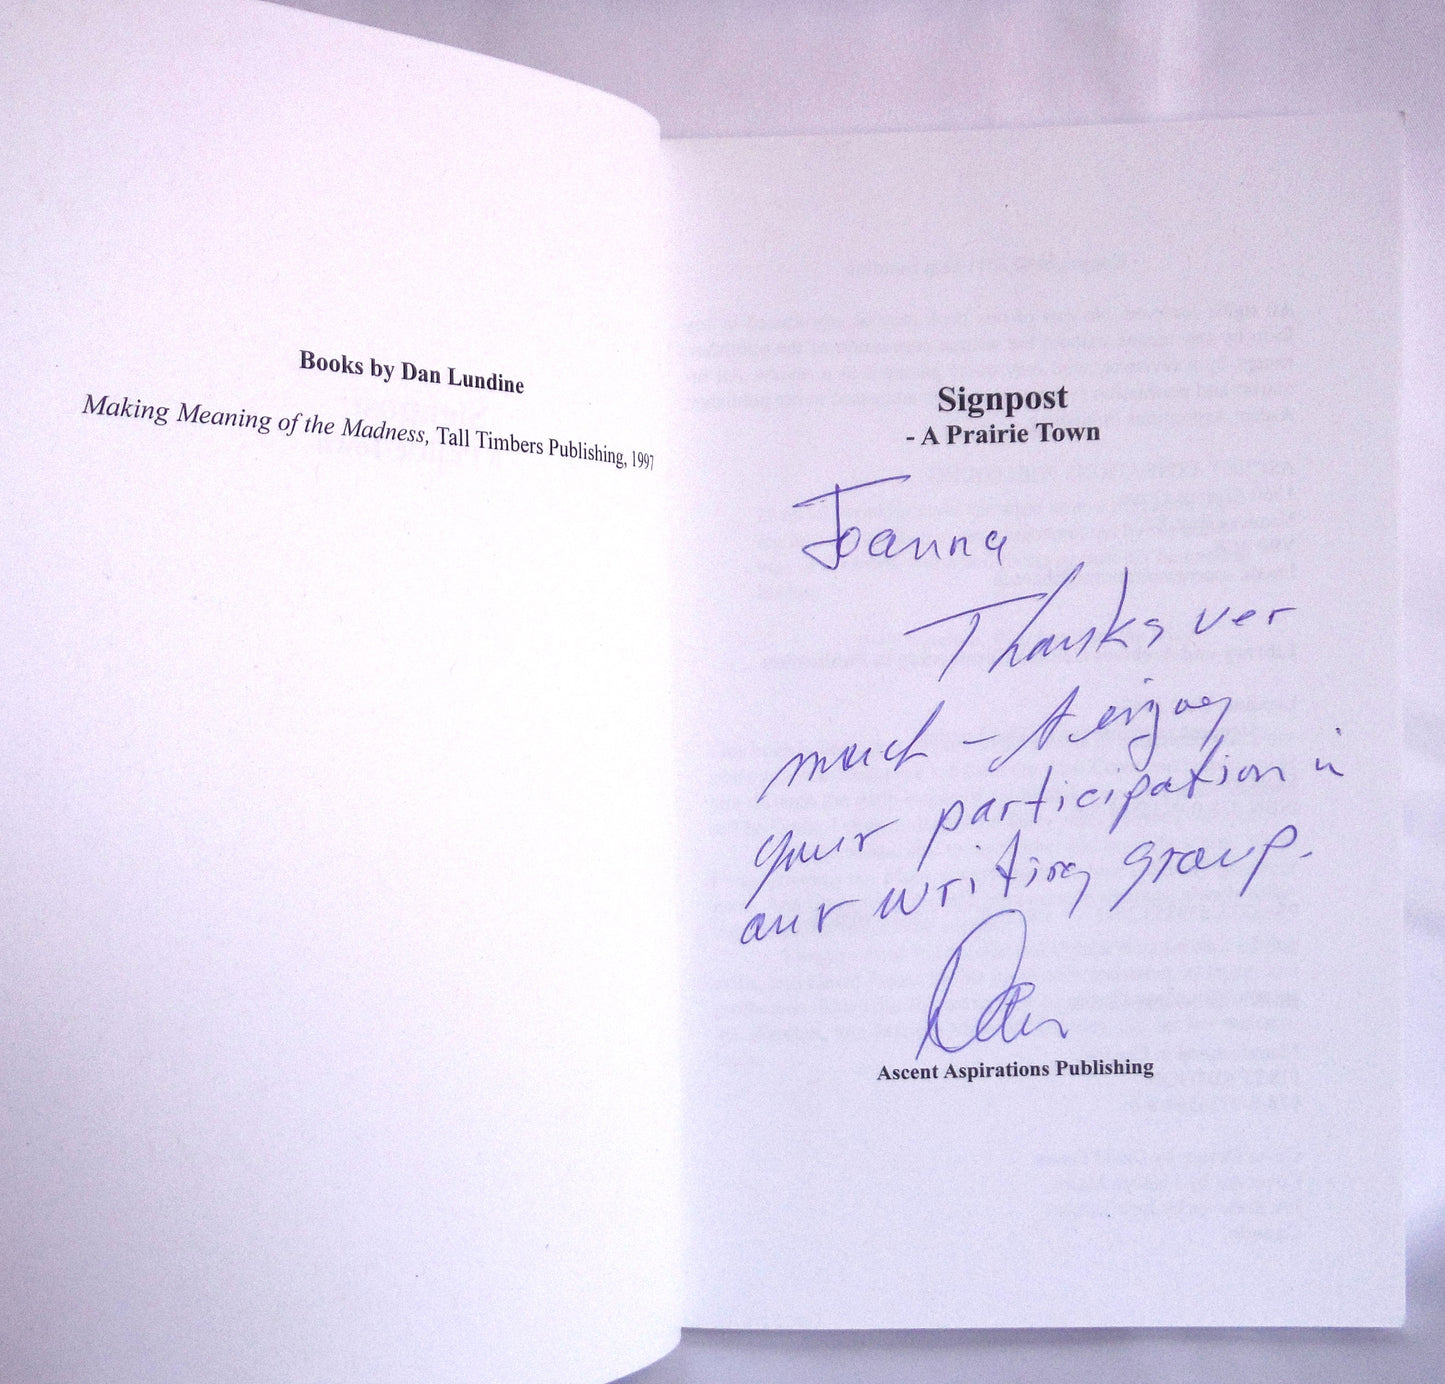 Books by Dan Lundine
Making Meaning of the Madness, Tall Timbers Publishing, 1997
Signpost
- A Prairie Town
Joanna
Thanks ver
much - I enjoy
your participation in
our writing group.
Dan
Ascent Aspirations Publishing